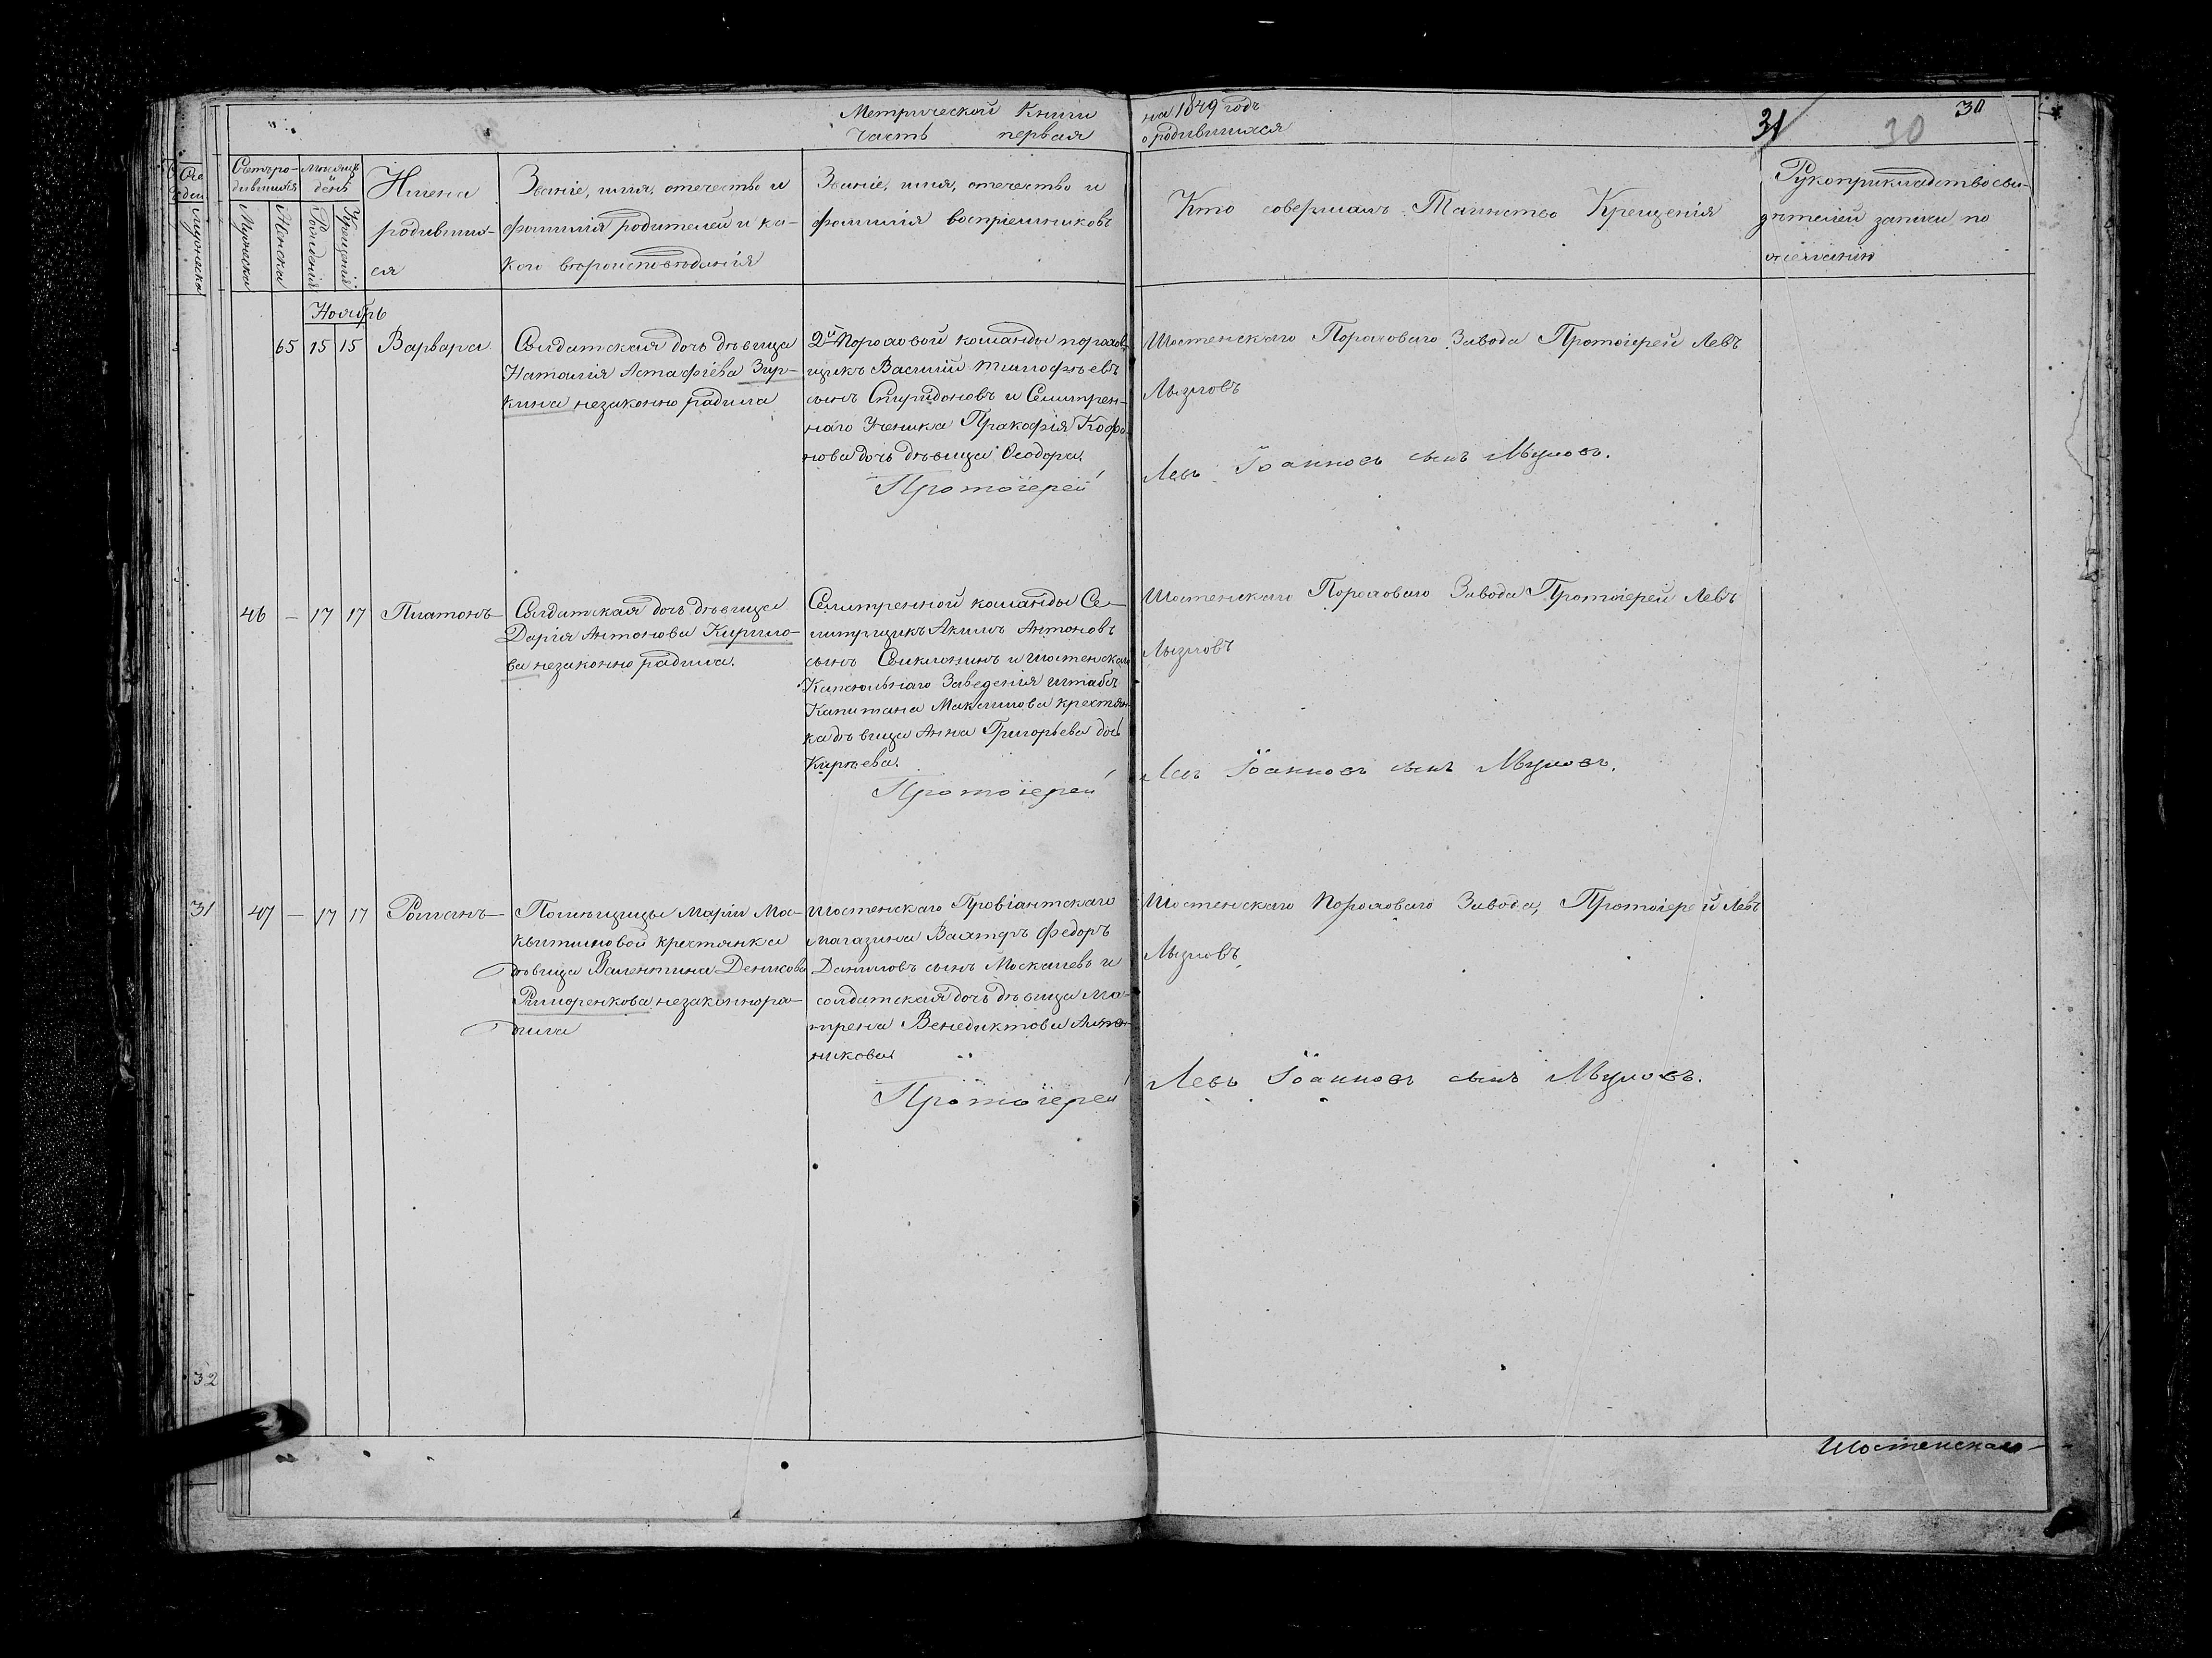 Метрической Книги на 1849 годъ
Часть первая о родившихся
31 30 30
Счетъ ро-
дившихся
Мужеска
Женска
Мѣсяцъ
и
день
Рожденія
Крещенія
Имена
родивших-
ся
Званіе, имя, отечество и
фамилія родителей и ка-
кого вѣроисповѣданія
Званіе, имя, отечество и
фамилія воспріемниковъ
Кто совершалъ Таинство Крещенія
Рукоприкладство сви-
дѣтелей записи по
желанію
Ноябрь
65 15 15 Варвара
Солдатская дочь дѣвица
Наталія Астафіева Зир-
кина незаконно родила
2й Пороховой команды порохов
щикъ Василій Тимофѣевъ
сынъ Спиридоновъ и Селитрен-
наго Ученика Прокофія
нова дочь дѣвица Ѳеодора.
Протоіерей
Шостенскаго Пороховаго Завода Протоіерей Левъ
Мызловъ
Левъ Іоанновъ сынъ Мызловъ.
46 — 17 17 Платонъ
Солдатская дочь дѣвица
Дарія Антонова Кирило-
ва незаконно родила.
Селитренной команды Се-
литрщикъ Акимъ Антоновъ
сынъ и Шостенскаго
Капсюльнаго Заведенія Штабсъ
Капитана Максимова крестьян
ка дѣвица Анна Григорьева дочь
Кирѣева.
Протоіерей
Шостенскаго Пороховаго Завода Протоіерей Левъ
Мызловъ
Левъ Іоанновъ сынъ Мызловъ.
31
47 — 17 17 Романъ
Помѣщицы Маріи Мос-
квитиновой крестянка
дѣвица Валентина Денисова
незаконно ро-
дила
Шостенскаго Провіантскаго
магазина Вахтеръ Федоръ
Даниловъ сынъ Москалевъ и
солдатская дочь дѣвица Ма-
трена Венедиктова
никова.
Протоіерей
Шостенскаго Пороховаго Завода, Протоіерей Левъ
Мызловъ
Левъ Іоанновъ сынъ Мызловъ.
32
Шостенскаго